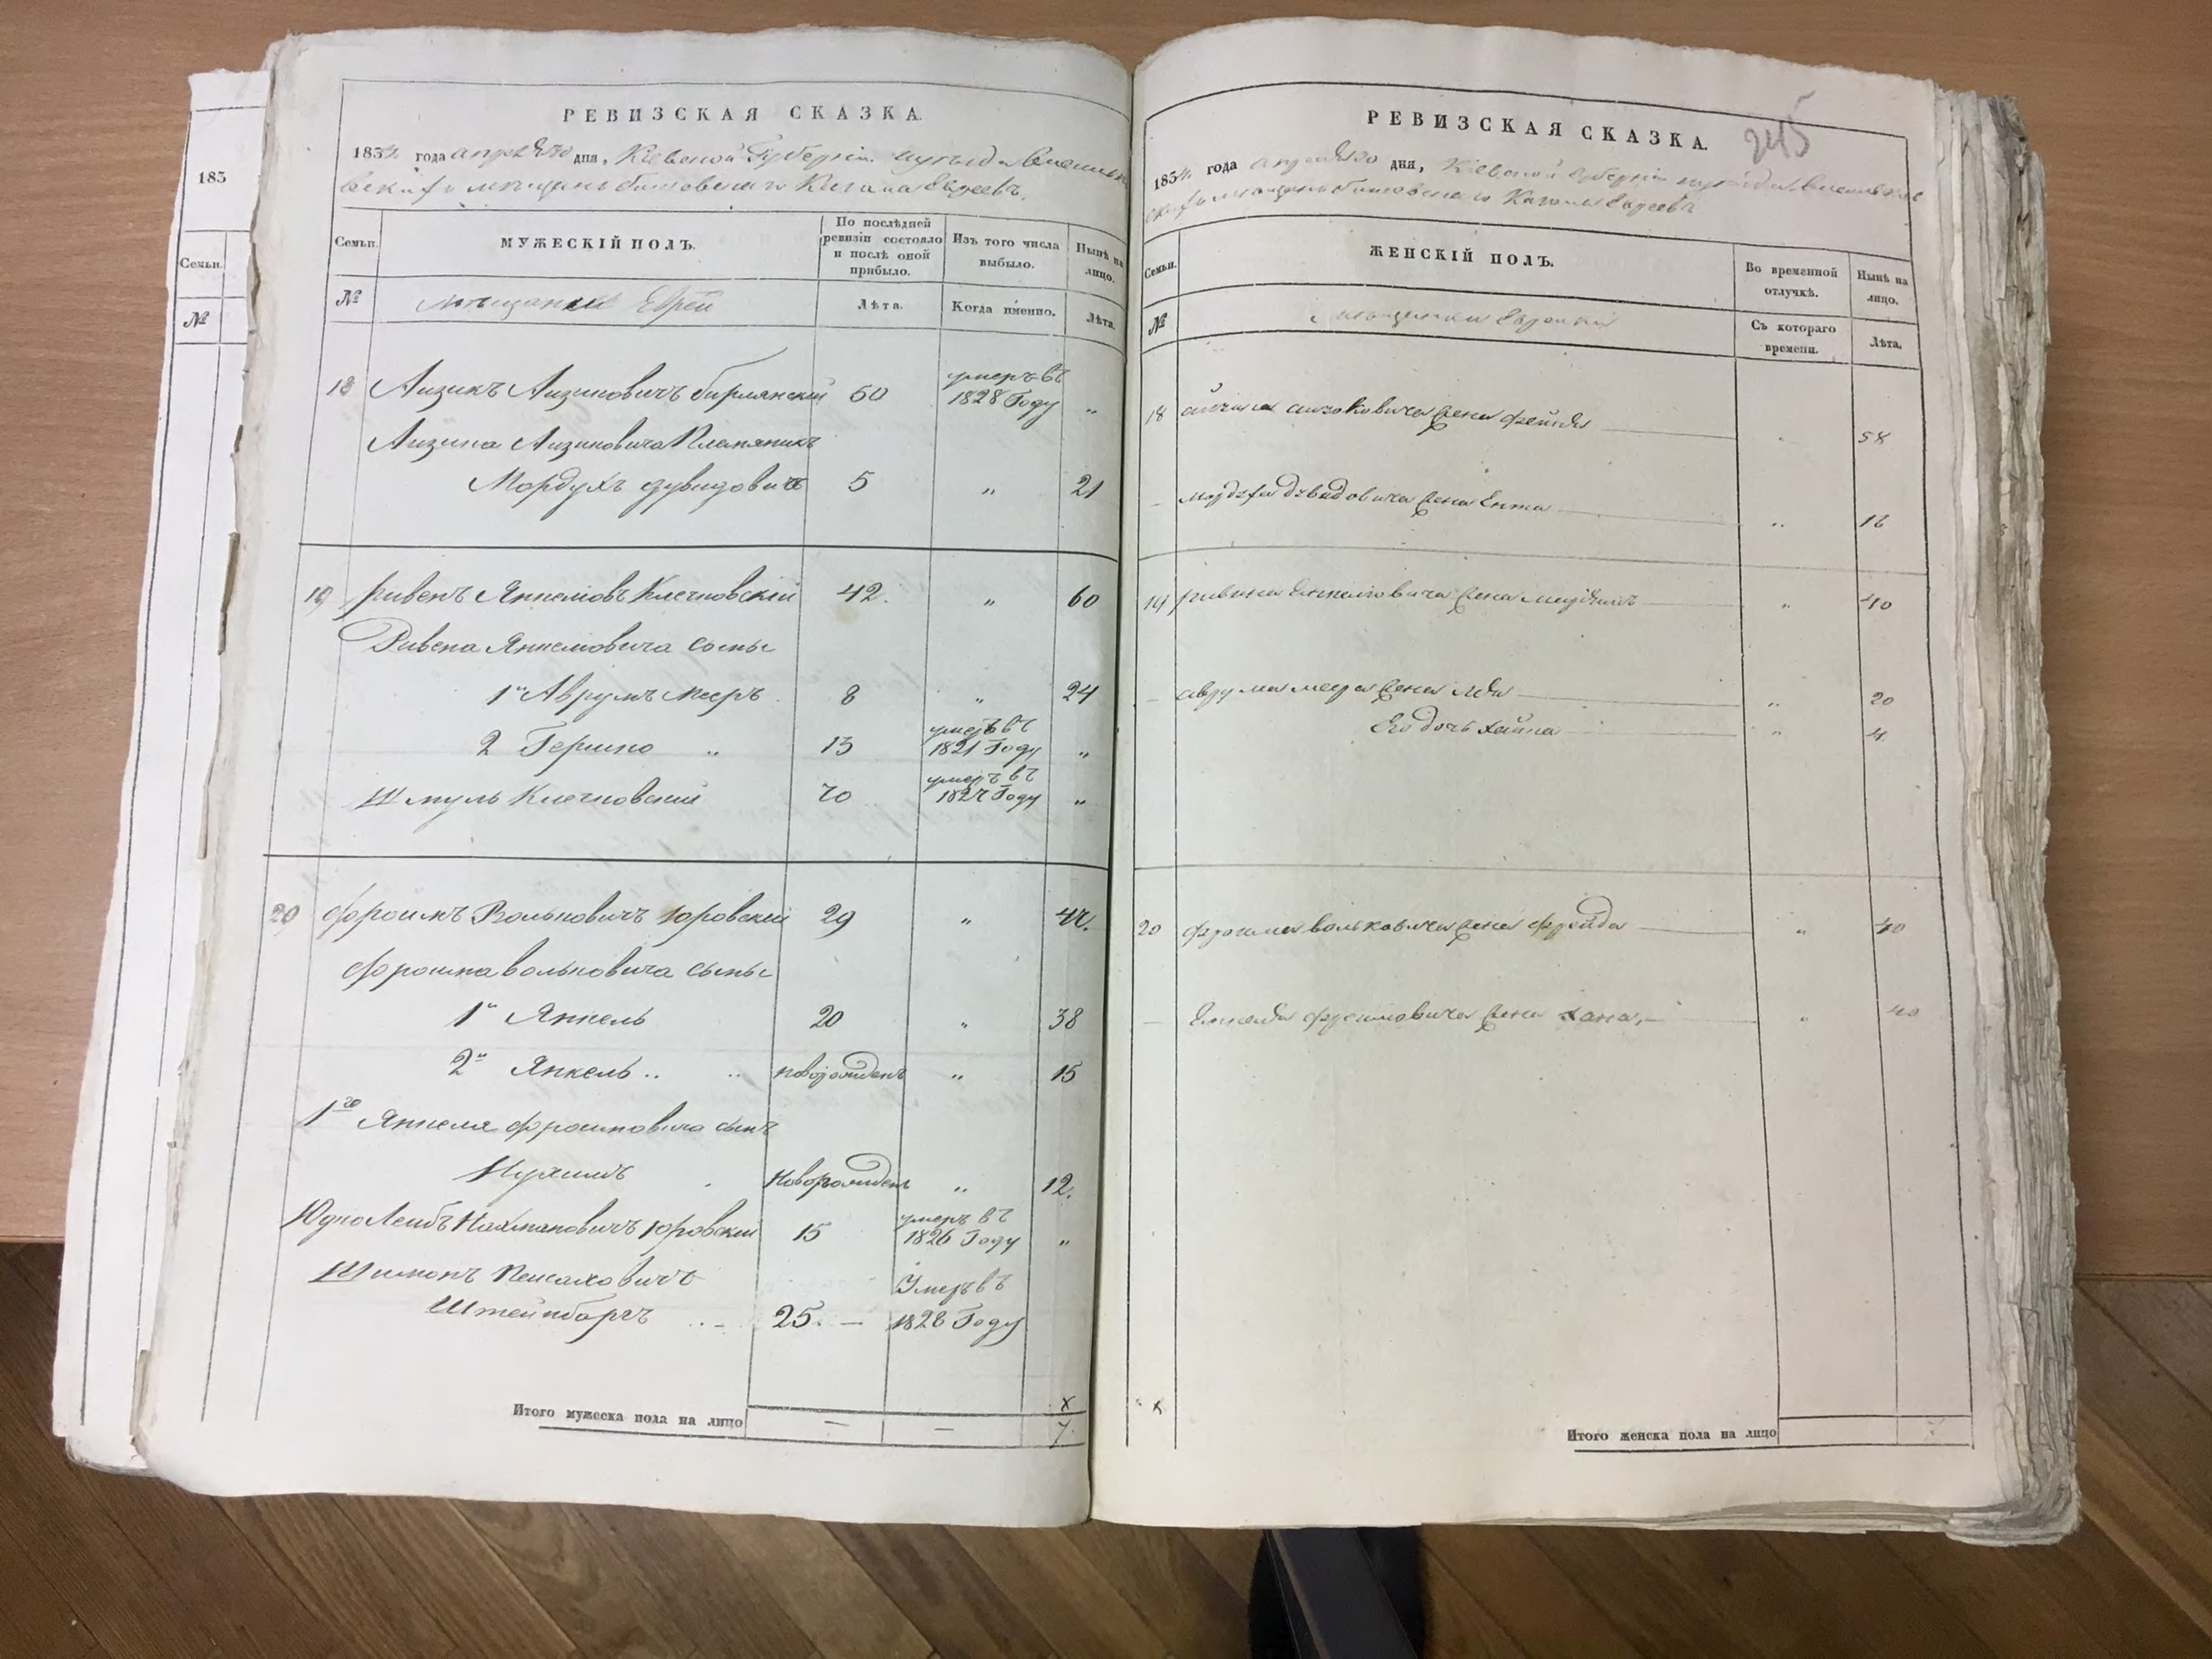 183
Семьи.
№
РЕВИЗСКАЯ СКАЗКА.
1834 года апреля 30 дня, Кіевской Губерніи
мещанъ Кагала Евреевъ.
Семьи.
МУЖЕСКІЙ ПОЛЪ.
По послѣдней ревизіи состояло и послѣ оной прибыло.
Изъ того числа выбыло.
Нынѣ на лицо.
№
Евреи
Лѣта.
Когда именно.
Лѣта.
18 Аизикъ Аизиковичъ 60 умеръ въ 1828 Году „
Аизика Аизиковича Племяникъ
Мордухъ дувидовичъ 5 „ 21
19 Ривенъ Янкелiовъ Клечковскій 42. „ 60
Ривена Янкелiовича сыны
1й Аврумъ Мееръ 8 „ 24
2 Гершко „ 13 умеръ въ 1821 Году „
Шмуль Клечковскій 70 умеръ въ 1827 Году „
20 Фроимъ Вольковичъ Юровскій 29 „ 47.
Фроима вольковича сыны
1й Янкель 20 „ 38
2й Янкель .. .. новорожденъ „ 15
1го Янкеля фроимовича сынъ
Нухимъ новорожденъ „ 12.
Юдко Лейбъ Нахмановичъ Юровскій 15 умеръ въ 1826 Году „
Шимонъ Пейсаховичъ Умеръ въ
Штейнбаргъ 25. — 1828 Году
х
Итого мужеска пола на лицо — — 7
245
РЕВИЗСКАЯ СКАЗКА.
1834 года апреля 30 дня, Кіевской Губерніи
Кагала Евреевъ
Семьи.
ЖЕНСКІЙ ПОЛЪ.
Во временной отлучкѣ.
Нынѣ на лицо.
№
Мещанки Еврейки
Съ котораго времени.
Лѣта.
18 айзика айзиковича жена фейга „ 58
мордуха дувидовича жена Ента „ 16
19 ривена Енкелiовича жена „ 40
аврума меера жена „ 20
Его дочь хайка „ 4.
20 фроима вольковича жена фрейда „ 40
Енкеля фроимовича жена хана, „ 40
х
Итого женска пола на лицо 7